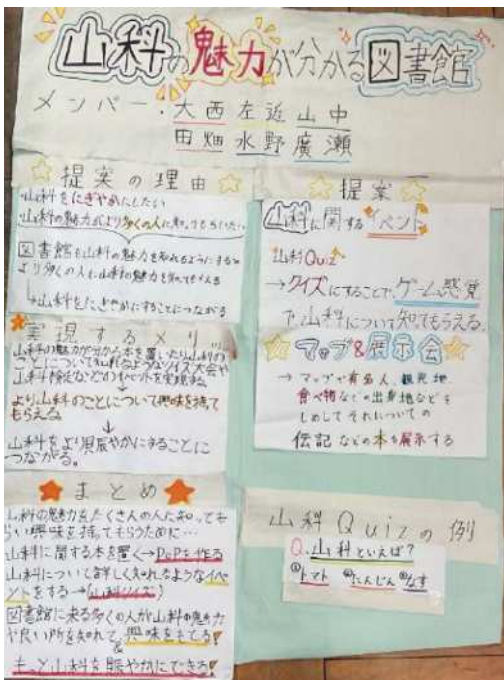 山科の魅力が分かる図書館
メンバー・大西左近山中
田畑水野廣瀬
提案の理由
・山科をにぎやかにしたい
・山科の魅力がより多くの人に知ってもらいたい
図書館も山科の魅力を知れるようにすると
より多くの人も山科の魅力を知ってもらえる
↳山科をにぎやかにすることにつながる
実現するメリット
山科の魅力が分かる本を置いたり山科の
ことについて知れるようなクイズ大会や
山科検定などのイベントを実現する。
より山科のことについて興味を持って
もらえる
↓
山科をより賑やかにすることに
つながる。
まとめ
山科の魅力をたくさんの人に知っても
らい興味を持ってもらうために…
山科に関する本を置く→POPを作る
山科について詳しく知れるようなイベ
ントをする→(山科クイズ)
図書館に来る多くの人が山科の魅力
や良い所を知れて、興味をもてる!
&
もっと山科を賑やかにできる!
提案
山科に関するイベント
山科Quiz
→クイズにすることで、ゲーム感覚
で、山科について知ってもらえる。
マップ&展示会
→マップで有名人、観光地
食べ物などの出身地などを
しめして それについての
伝記などの本を展示する
山科Quizの例
Q.山科といえば?
①トマト ②にんじん ③なす